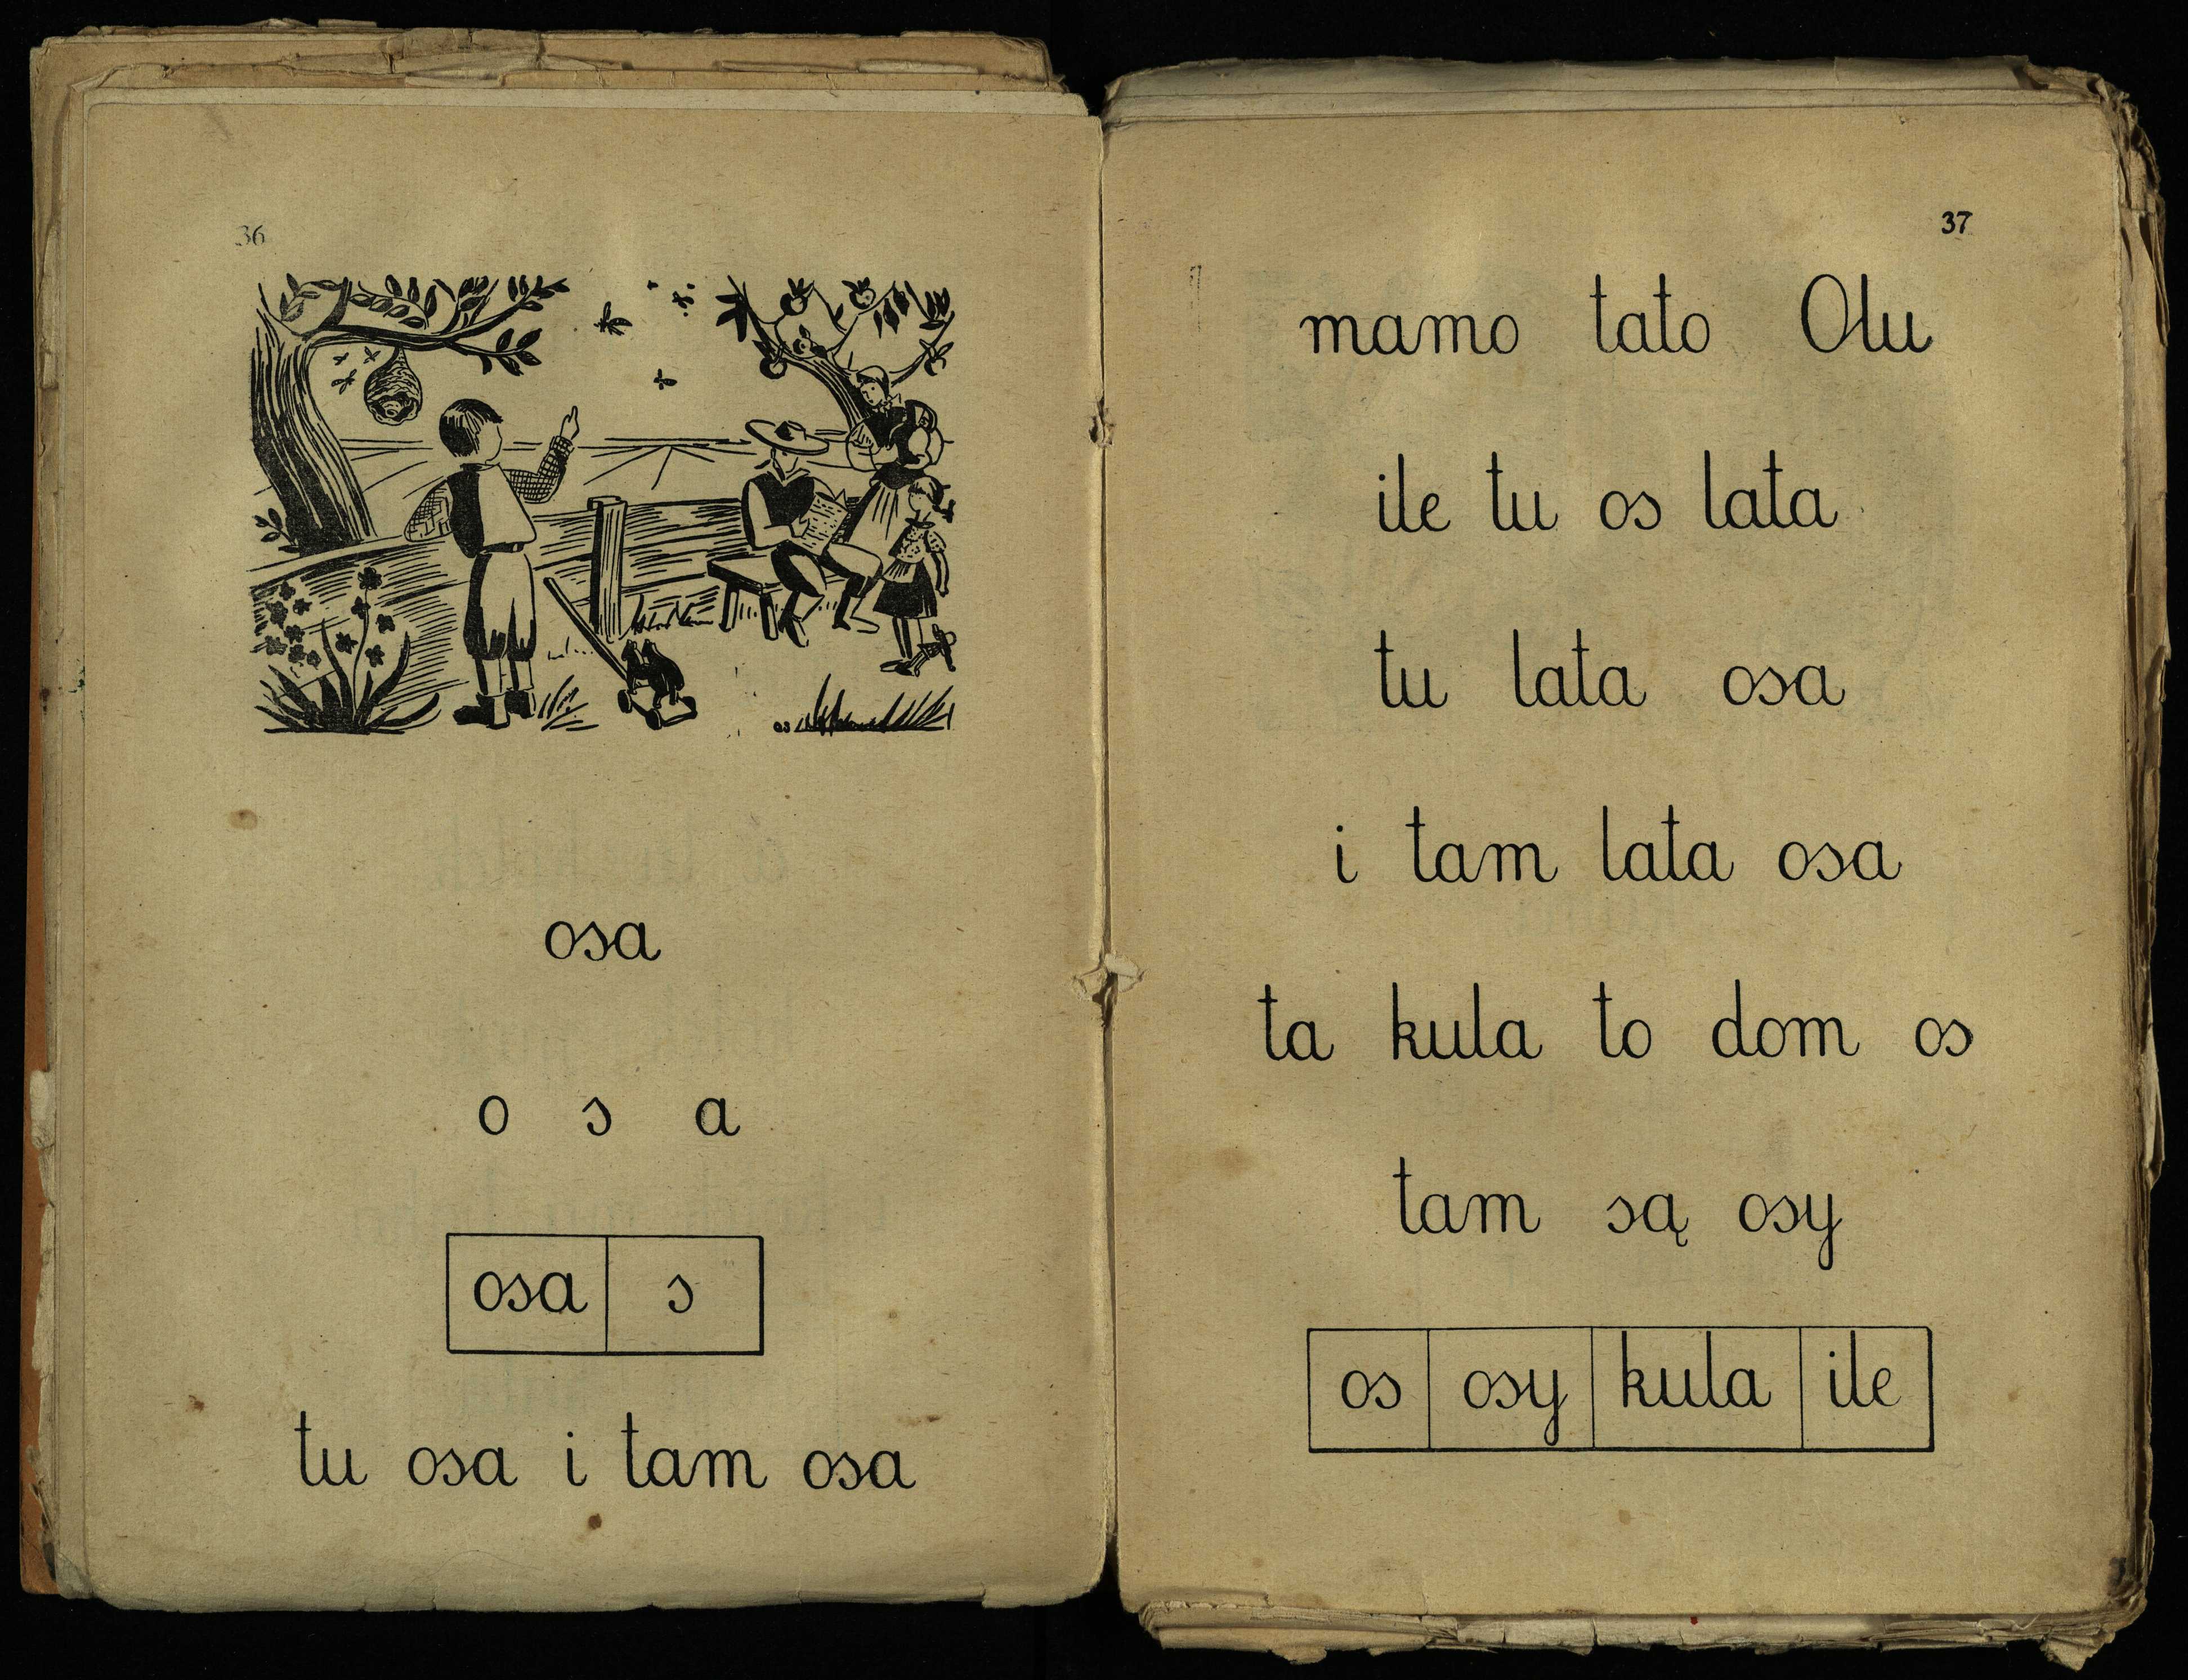 36
osa
o s a
osa s
tu osa i tam osa
37
mamo tato Olu
ile tu os lata
tu lata osa
i tam lata osa
ta kula to dom os
tam są osy
os osy kula ile